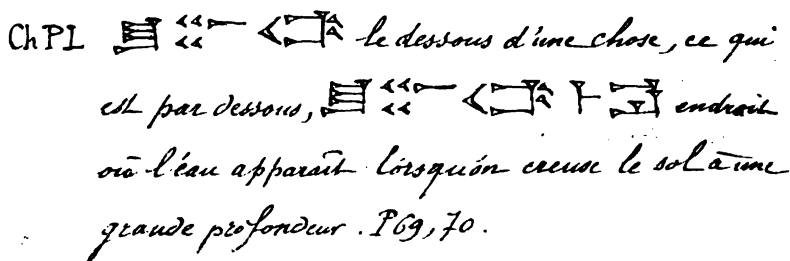 ChPL le dessous d'une chose, ce qui
est par dessous, endroit
où l'eau apparaît lorsqu'on creuse le sol à une
grande profondeur. P 69, 70.